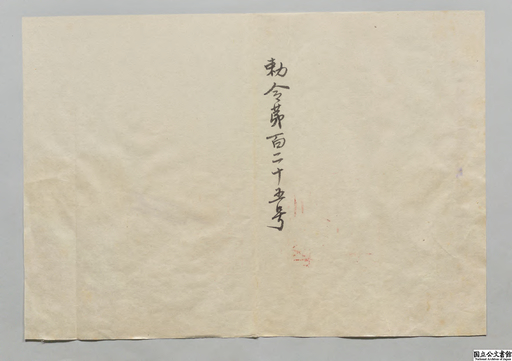 勅令第百二十五号
国立公文書館
National Archives of Japan